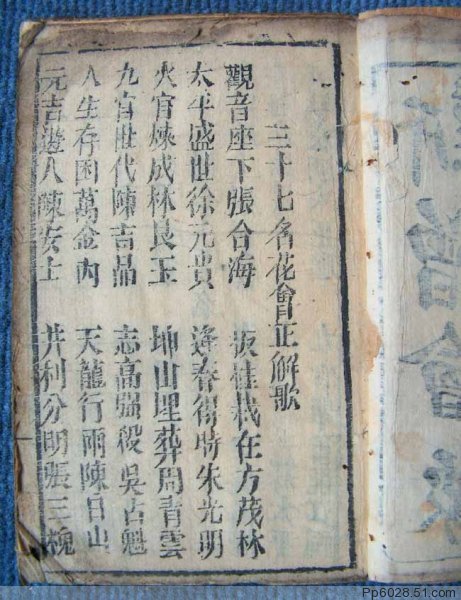 三十七名花會正解歌
觀音座下張合海　扳桂栽在方茂林
太平盛世徐元貴　逢春得時朱光明
火官煉成林艮玉　坤山埋葬周青雲
九官世代陳吉品　志高強殺吳占魁
人生存困萬金內　天龍行雨陳日山
元吉遊八陳安士　井利分明張三槐
Pp6028.51.com